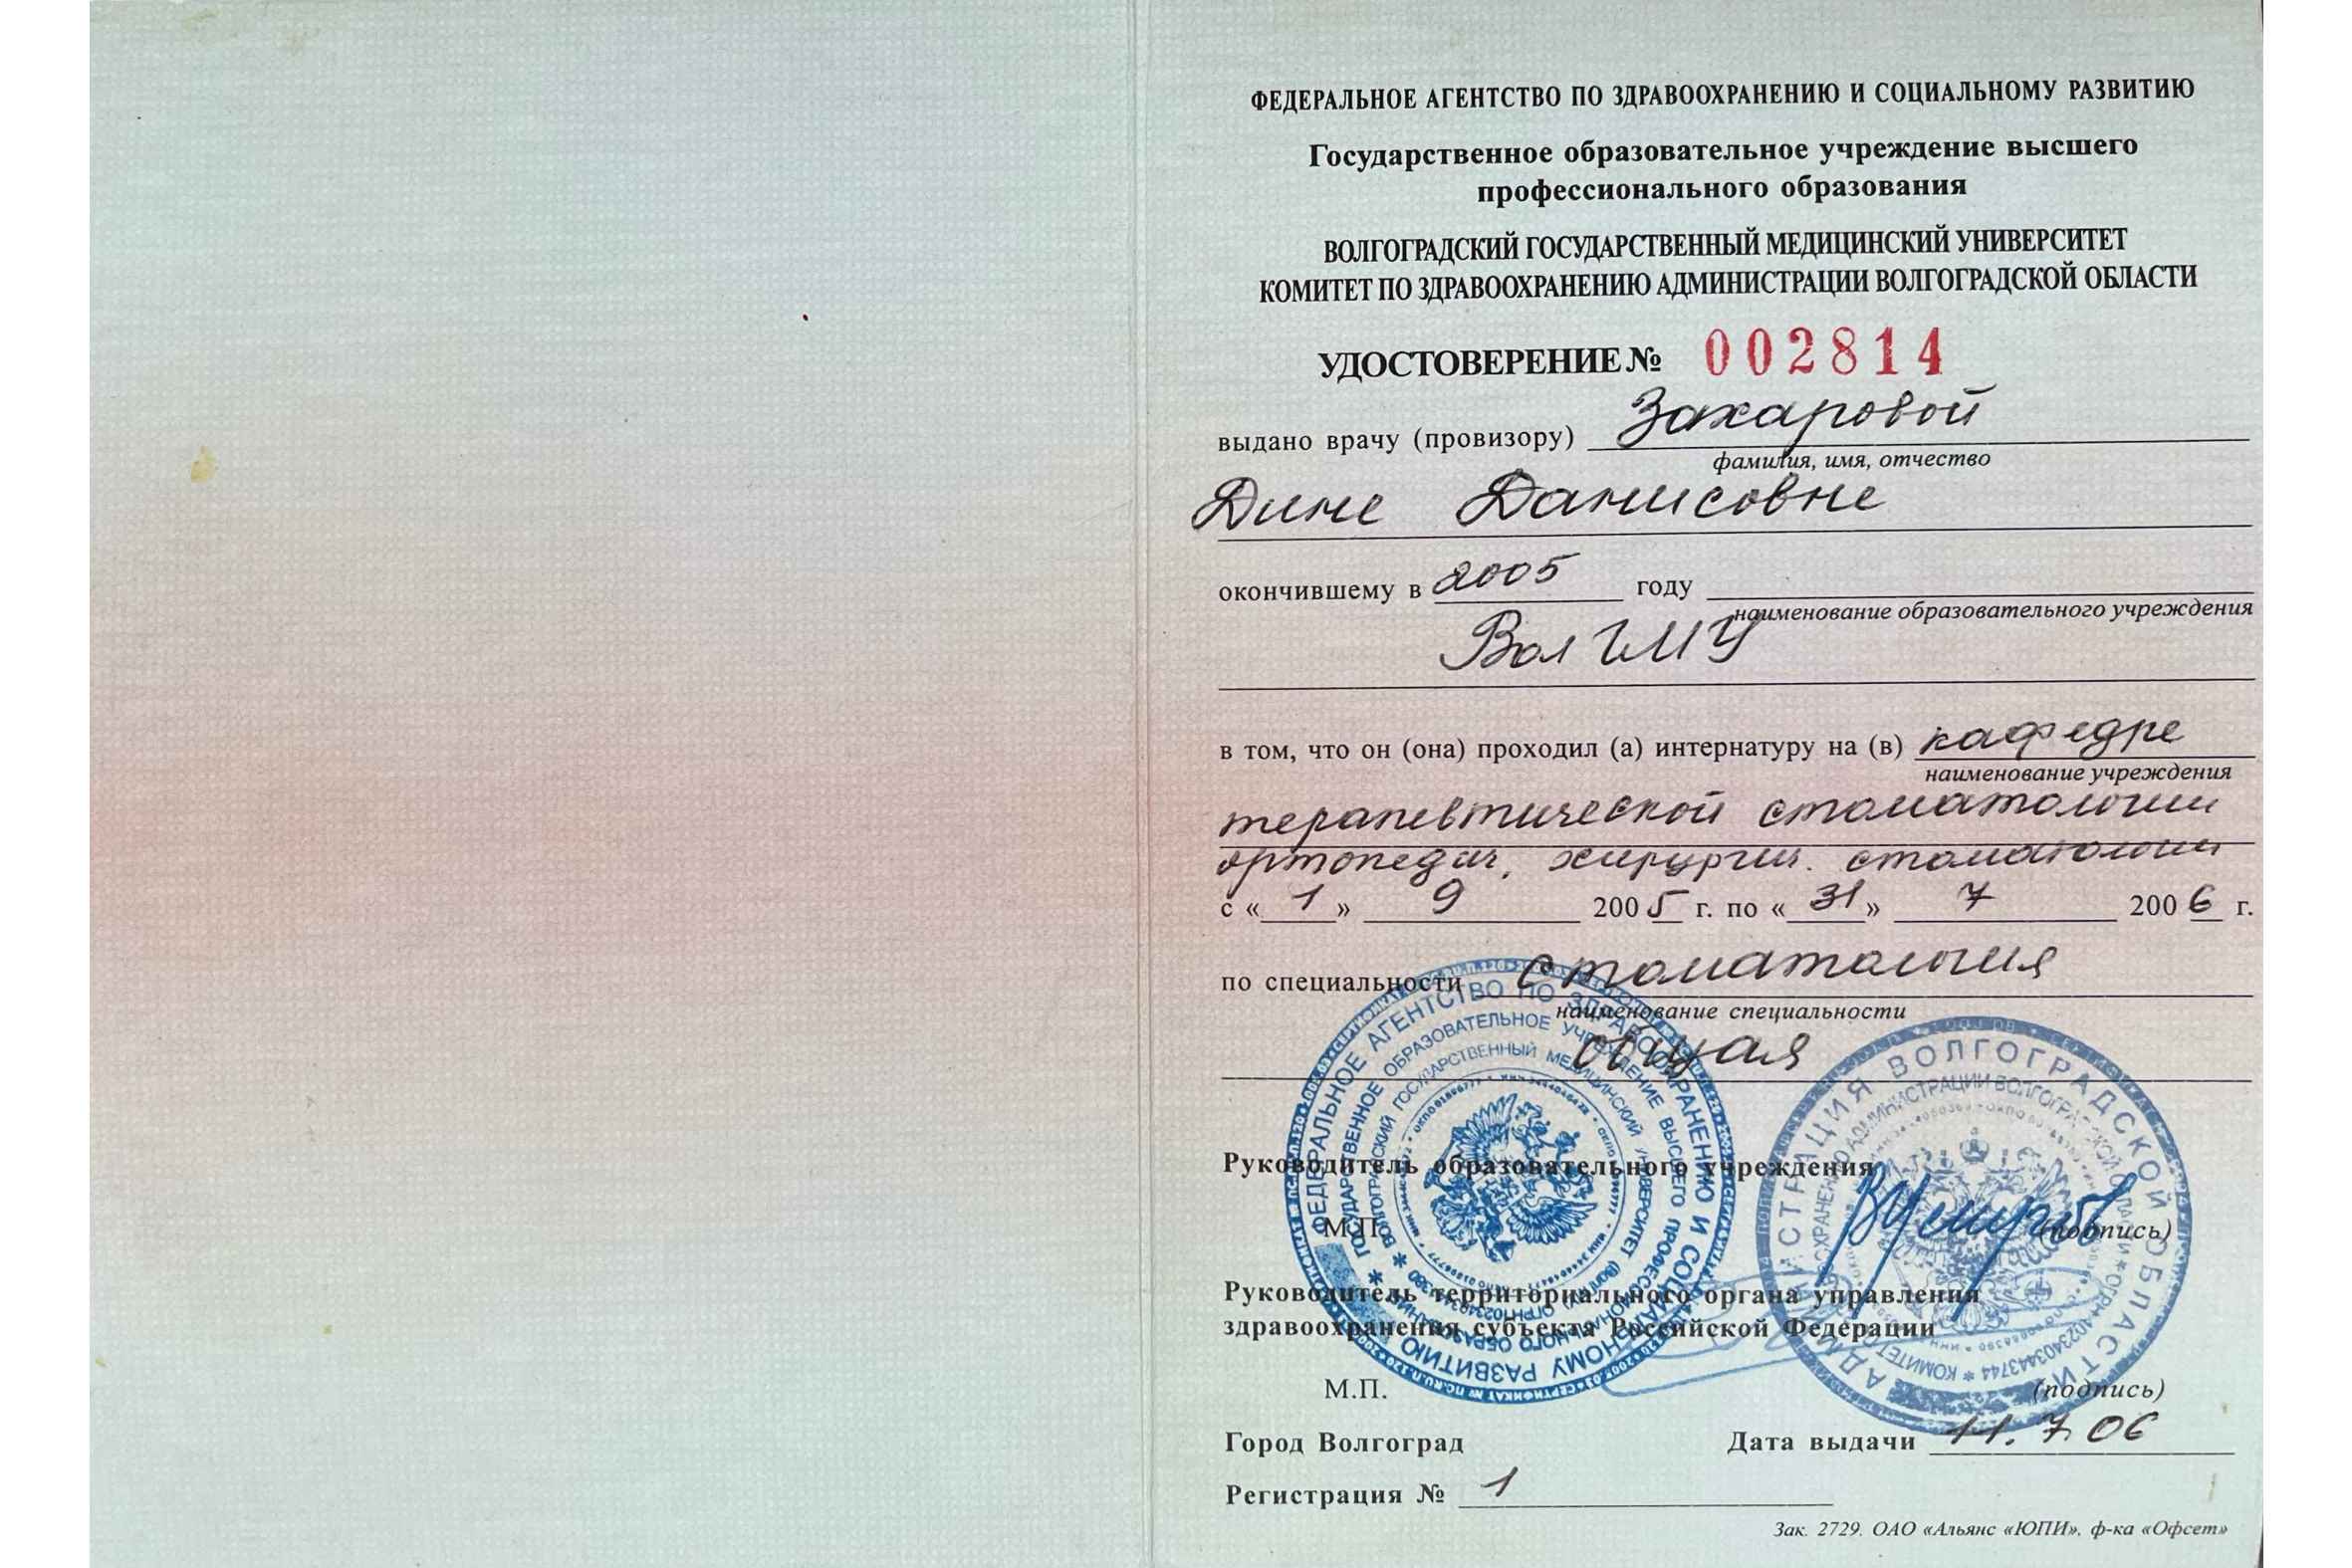 ФЕДЕРАЛЬНОЕ АГЕНТСТВО ПО ЗДРАВООХРАНЕНИЮ И СОЦИАЛЬНОМУ РАЗВИТИЮ
Государственное образовательное учреждение высшего
профессионального образования
ВОЛГОГРАДСКИЙ ГОСУДАРСТВЕННЫЙ МЕДИЦИНСКИЙ УНИВЕРСИТЕТ
КОМИТЕТ ПО ЗДРАВООХРАНЕНИЮ АДМИНИСТРАЦИИ ВОЛГОГРАДСКОЙ ОБЛАСТИ
УДОСТОВЕРЕНИЕ № 002814
выдано врачу (провизору) Захаровой
фамилия, имя, отчество
Дине Данисовне
окончившему в 2005 году
наименование образовательного учреждения
ВолГМУ
в том, что он (она) проходил (а) интернатуру на (в) кафедре
наименование учреждения
терапевтической стоматологии
ортопедич. хирургич. стоматологии
с «1» 9 2005 г. по «31» 7 2006 г.
по специальности стоматология
наименование специальности
общая
Руководитель образовательного учреждения
М.П. (подпись)
Руководитель территориального органа управления
здравоохранения субъекта Российской Федерации
М.П. (подпись)
Город Волгоград Дата выдачи 11.7.06
Регистрация № 1
Зак. 2729. ОАО «Альянс «ЮПИ». ф-ка «Офсет»
ФЕДЕРАЛЬНОЕ АГЕНТСТВО ПО ЗДРАВООХРАНЕНИЮ И СОЦИАЛЬНОМУ РАЗВИТИЮ
ГОСУДАРСТВЕННОЕ ОБРАЗОВАТЕЛЬНОЕ УЧРЕЖДЕНИЕ ВЫСШЕГО ПРОФЕССИОНАЛЬНОГО ОБРАЗОВАНИЯ
ВОЛГОГРАДСКИЙ ГОСУДАРСТВЕННЫЙ МЕДИЦИНСКИЙ УНИВЕРСИТЕТ
АДМИНИСТРАЦИЯ ВОЛГОГРАДСКОЙ ОБЛАСТИ
КОМИТЕТ ПО ЗДРАВООХРАНЕНИЮ АДМИНИСТРАЦИИ ВОЛГОГРАДСКОЙ ОБЛАСТИ * ОГРН 1023403443744